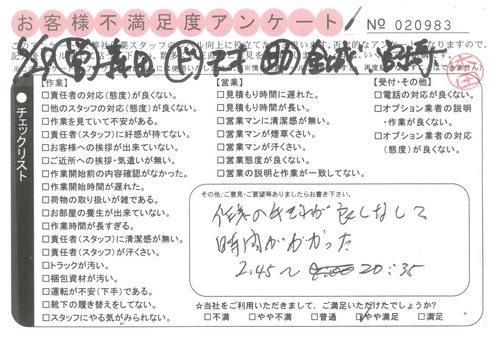 お客様不満足度アンケート
No 020983
チェックリスト
【作業】
□責任者の対応(態度)が良くない。
□他のスタッフの対応(態度)が良くない。
□作業を見ていて不安がある。
□責任者(スタッフ)に好感が持てない。
□お客様への挨拶が出来ていない。
□ご近所への挨拶・気遣いが無い。
□作業開始前の内容確認がなかった。
□作業開始時間が遅れた。
□荷物の取り扱いが雑である。
□お部屋の養生が出来ていない。
□作業時間が長すぎる。
□責任者(スタッフ)に清潔感が無い。
□責任者(スタッフ)が汗くさい。
□トラックが汚い。
□梱包資材が汚い。
□運転が不安(下手)である。
□靴下の履き替えをしてない。
□スタッフにやる気がみられない。
【営業】
□見積もり時間に遅れた。
□見積もり時間が長い。
□営業マンに清潔感が無い。
□営業マンが煙草くさい。
□営業マンが汗くさい。
□営業態度が良くない。
□営業の説明と作業が一致してない。
【受付・その他】
□電話の対応が良くない。
□オプション業者の説明
・作業が良くない。
□オプション業者の対応
(態度)が良くない。
その他、ご意見・ご要望等ありましたらお書き下さい。
時間がかかった
2:45～
20:35
☆当社をご利用いただきまして、ご満足いただけたでしょうか?
□不満 □やや不満 □普通 □やや満足 □満足